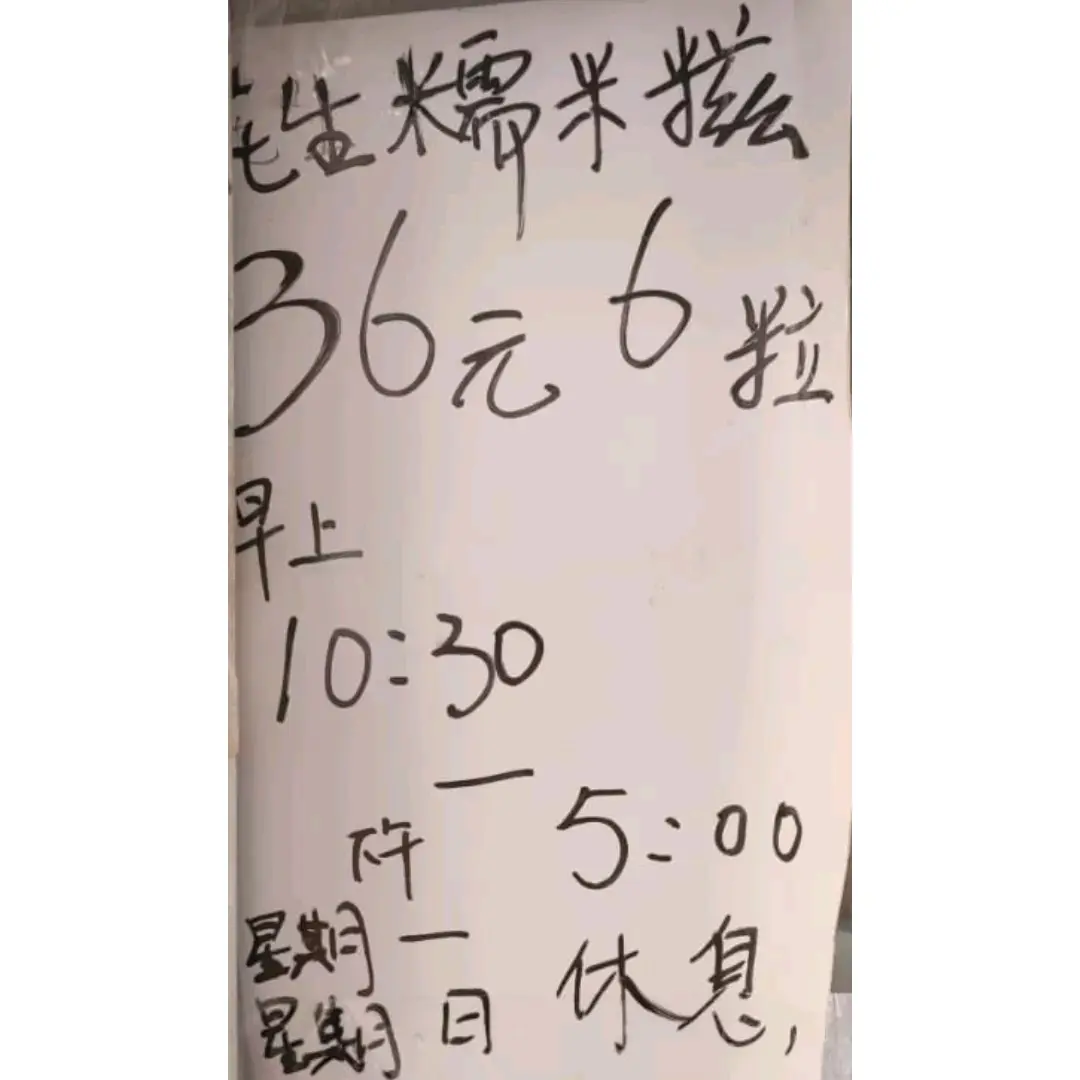 花生糯米糍
36元 6粒
早上
10:30
—
下午 5:00
星期一
星期日 休息,